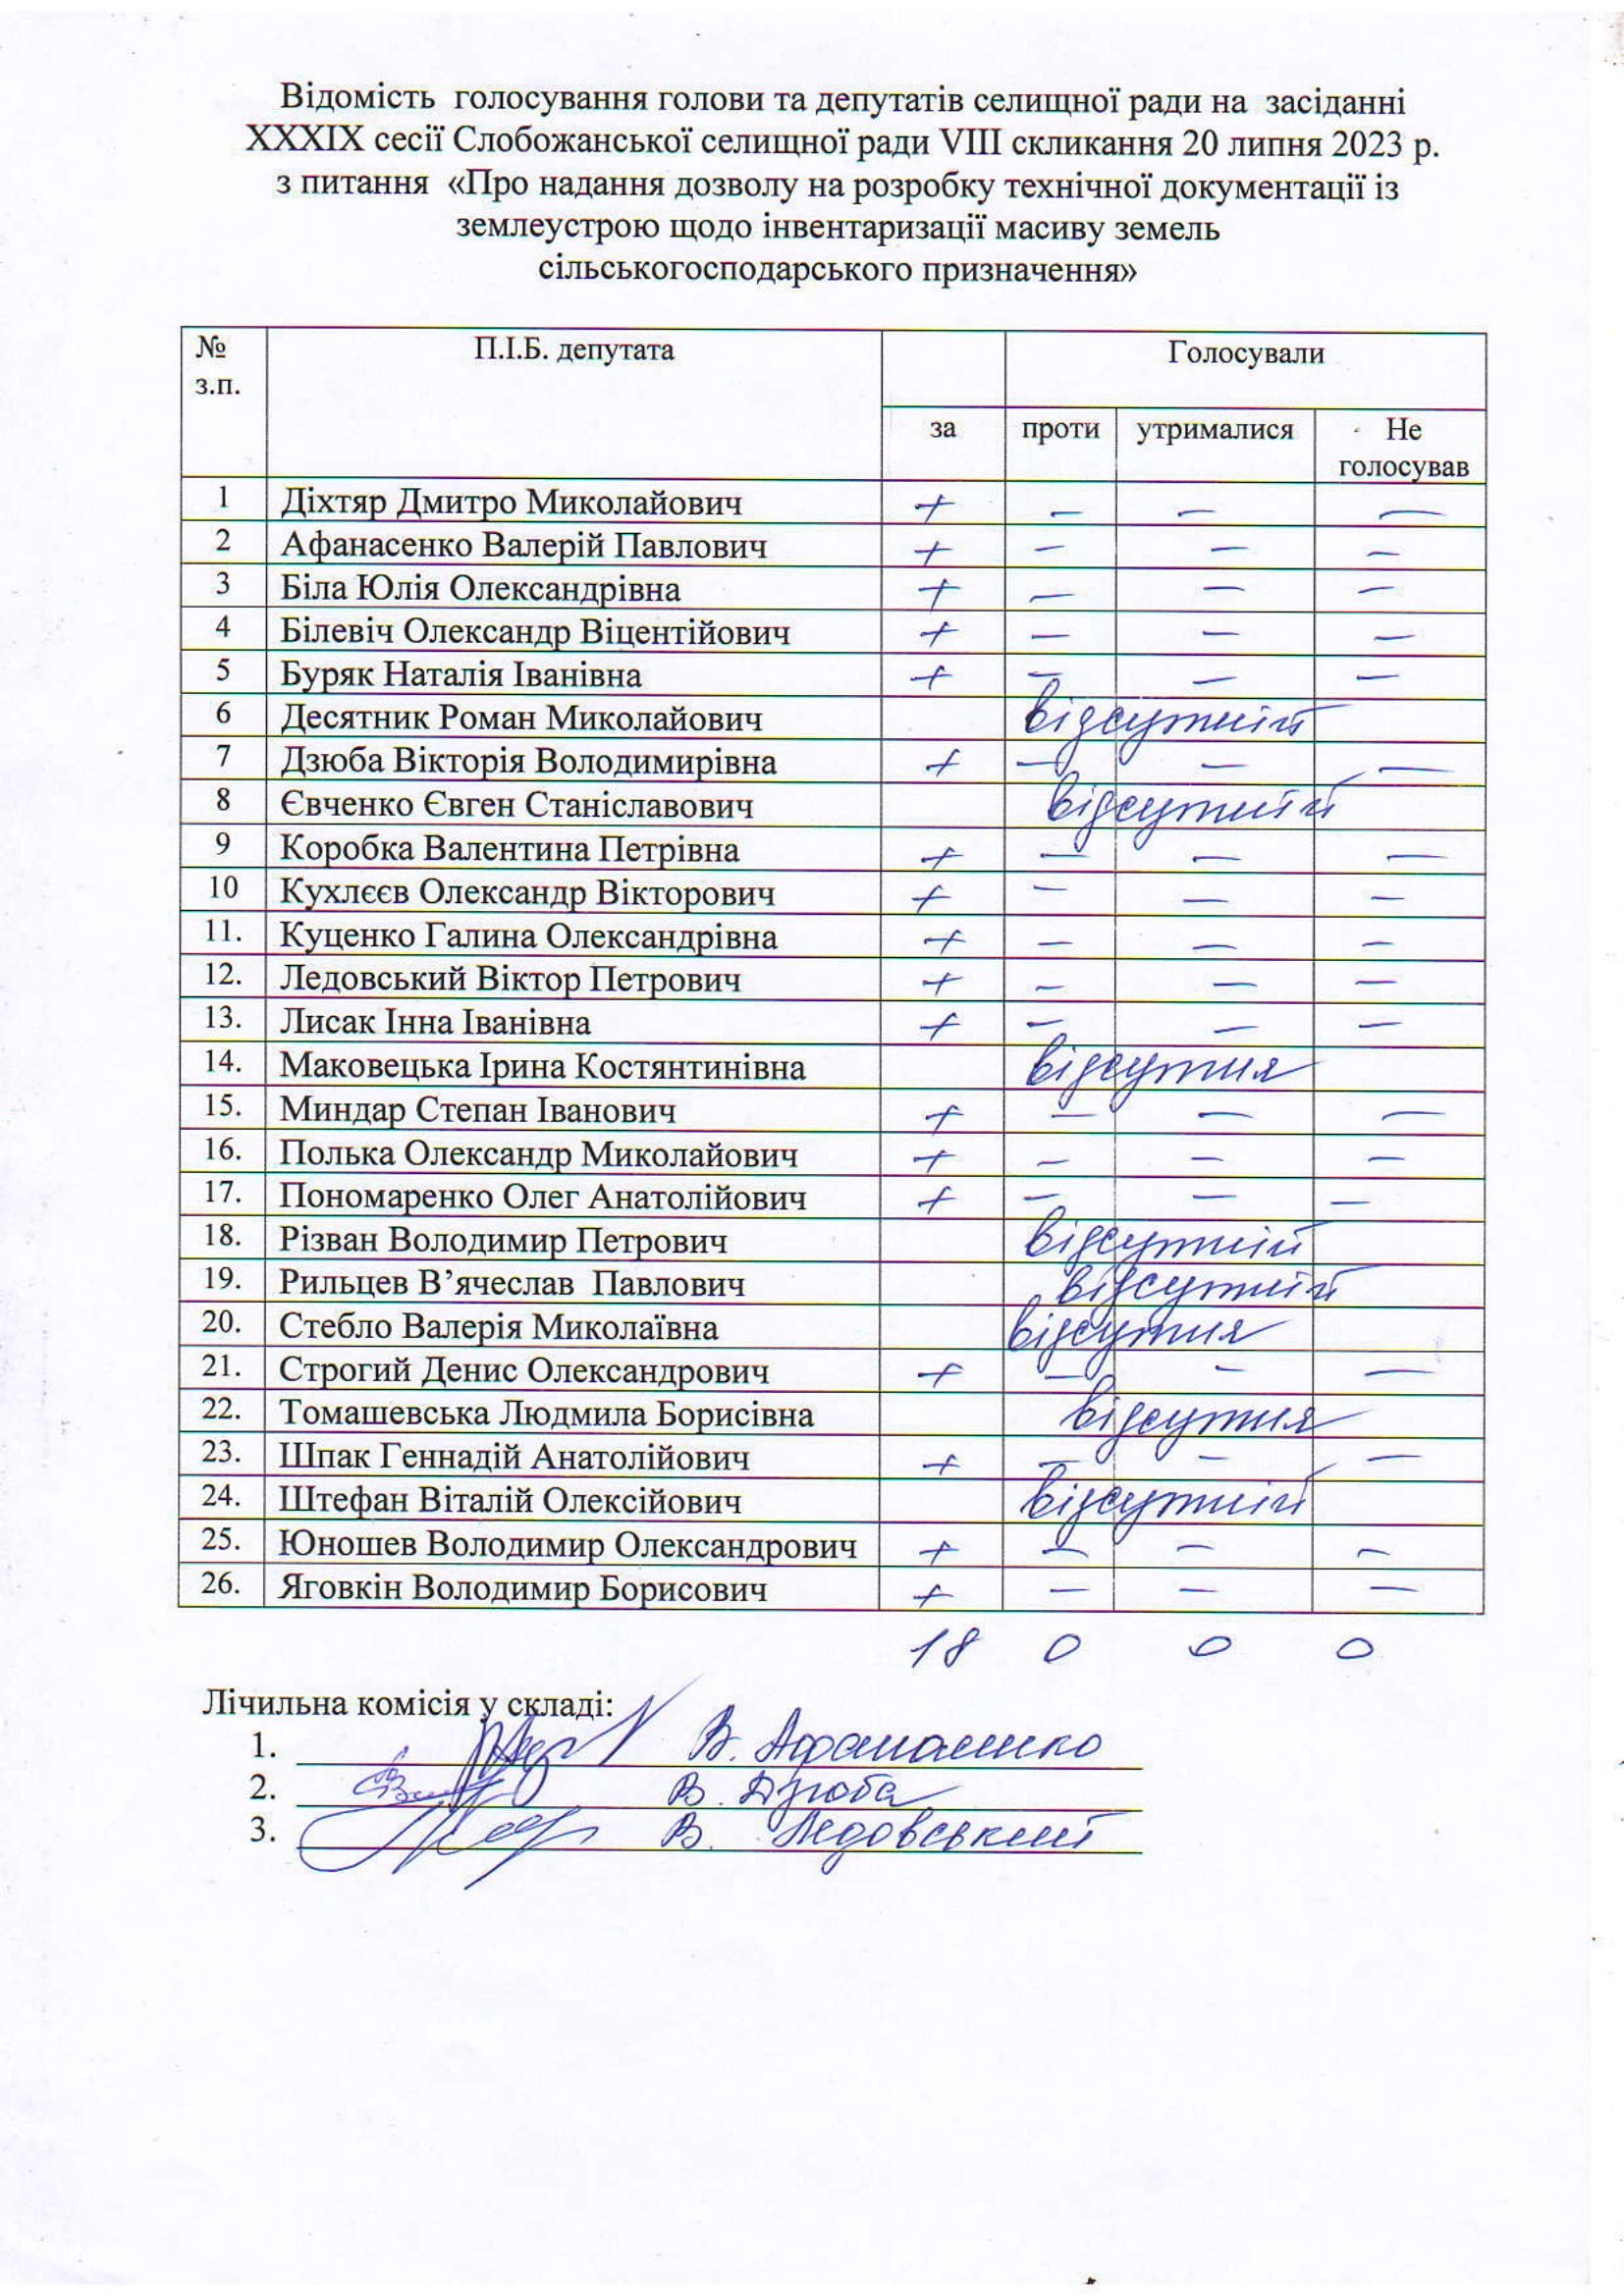 Відомість голосування голови та депутатів селищної ради на засіданні
XXXIX сесії Слобожанської селищної ради VIII скликання 20 липня 2023 р.
з питання «Про надання дозволу на розробку технічної документації із
землеустрою щодо інвентаризації масиву земель
сільськогосподарського призначення»
№ з.п. П.І.Б. депутата Голосували
за проти утрималися Не голосував
1 Діхтяр Дмитро Миколайович + – – –
2 Афанасенко Валерій Павлович + – – –
3 Біла Юлія Олександрівна + – – –
4 Білевіч Олександр Віцентійович + – – –
5 Буряк Наталія Іванівна + – – –
6 Десятник Роман Миколайович відсутній
7 Дзюба Вікторія Володимирівна + – – –
8 Євченко Євген Станіславович відсутній
9 Коробка Валентина Петрівна + – – –
10 Кухлєєв Олександр Вікторович + – – –
11. Куценко Галина Олександрівна + – – –
12. Ледовський Віктор Петрович + – – –
13. Лисак Інна Іванівна + – – –
14. Маковецька Ірина Костянтинівна відсутня
15. Миндар Степан Іванович + – – –
16. Полька Олександр Миколайович + – – –
17. Пономаренко Олег Анатолійович + – – –
18. Різван Володимир Петрович відсутній
19. Рильцев В’ячеслав Павлович відсутній
20. Стебло Валерія Миколаївна відсутня
21. Строгий Денис Олександрович + – – –
22. Томашевська Людмила Борисівна відсутня
23. Шпак Геннадій Анатолійович + – – –
24. Штефан Віталій Олексійович відсутній
25. Юношев Володимир Олександрович + – – –
26. Яговкін Володимир Борисович + – – –
18 0 0 0
Лічильна комісія у складі:
1. В. Афанасенко
2. В. Дзюба
3. В. Ледовський